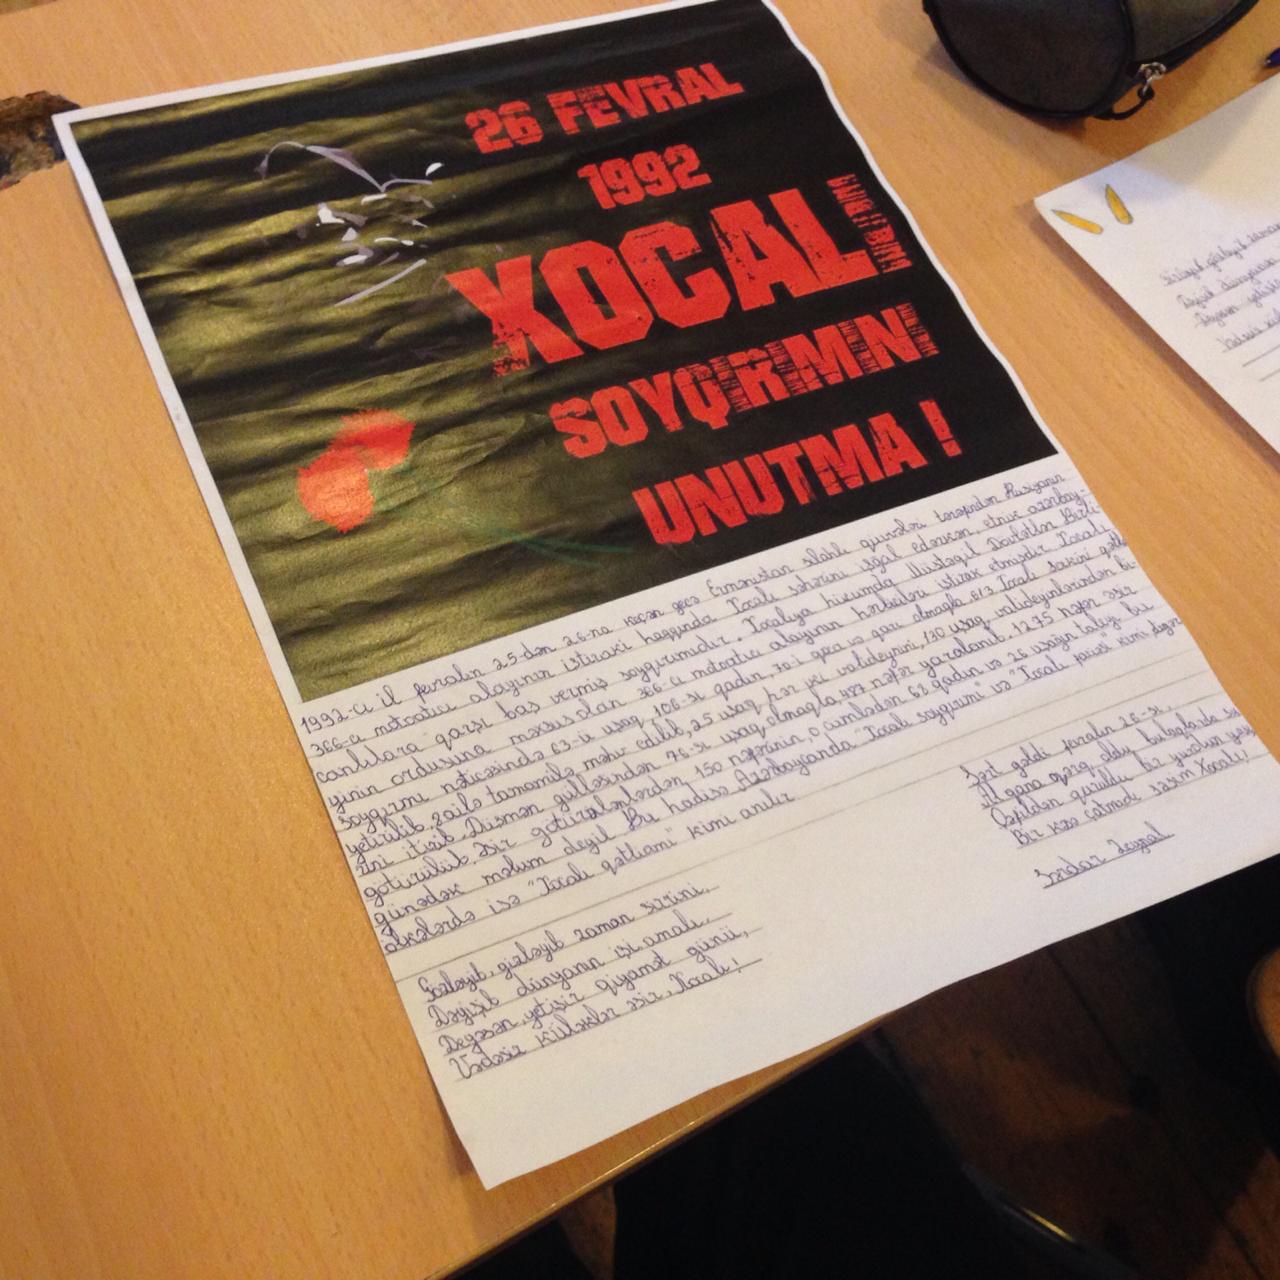 26 FEVRAL
1992
XOCALI
SOYQIRIMINI
UNUTMA !
1992-ci il fevralın 25-dən 26-na keçən gecə Ermənistan silahlı qüvvələri tərəfindən Rusiyanın
366-cı motoatıcı alayının iştirakı haqqında Xocalı şəhərini işğal edərkən, etnik azərbay-
canlılara qarşı baş vermiş soyqırımıdır. Xocalıya hücumda Müstəqil Dövlətlər Birli-
yinin ordusuna məxsus olan 366-cı motoatıcı alayının hərbçiləri iştirak etmişdir. Xocalı
soyqırımı nəticəsində 63-ü uşaq, 106-sı qadın, 70-i qoca və qarı olmaqla 613 Xocalı sakini qətlə
yetirilib, 8 ailə tamamilə məhv edilib, 25 uşaq hər iki valideynini, 130 uşaq valideynlərindən bi-
rini itirib. Düşmən gülləsindən 76-sı uşaq olmaqla, 487 nəfər yaralanıb, 1275 nəfər əsir
götürülüb. Əsir götürülənlərdən 150 nəfərinin, o cümlədən 68 qadın və 26 uşağın taleyi bu
günədək məlum deyil. Bu hadisə Azərbaycanda "Xocalı soyqırımı" və "Xocalı faciəsi" kimi digər
ölkələrdə isə "Xocalı qətliamı" kimi anılır
Sərt gəldi fevralın 26-sı,
İl qana qərq oldu bulaqlarda su
Qəfildən quruldu bir yurdun yası
Bir kəsə çatmadı səsin Xocalı!
Sərdar Zeynal
Gözləyib, gizləyib zaman sirrini,
Dəyişib dünyanın işi, amalı,
Deyəsən, yetişir qiyamət günü,
Vədəsiz küləklər əsir, Xocalı!